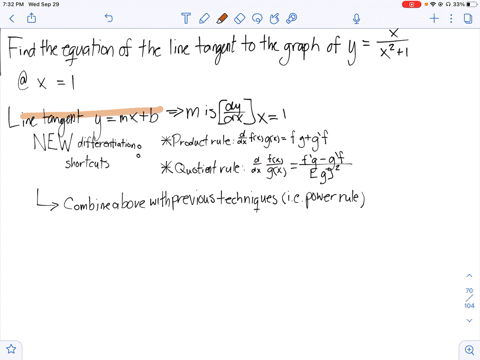 7:32 PM Wed Sep 29
33%
Find the equation of the line tangent to the graph of y = x/(x²+1)
@ x = 1
Line tangent y = mx+b ⇒ m is [dy/dx] x=1
NEW differentiation shortcuts :
* Product rule: d/dx f(x)g(x) = f'g+g'f
* Quotient rule: d/dx f(x)/g(x) = f'g - g'f / [g]²
↳ Combine above with previous techniques (i.e. power rule)
70
104